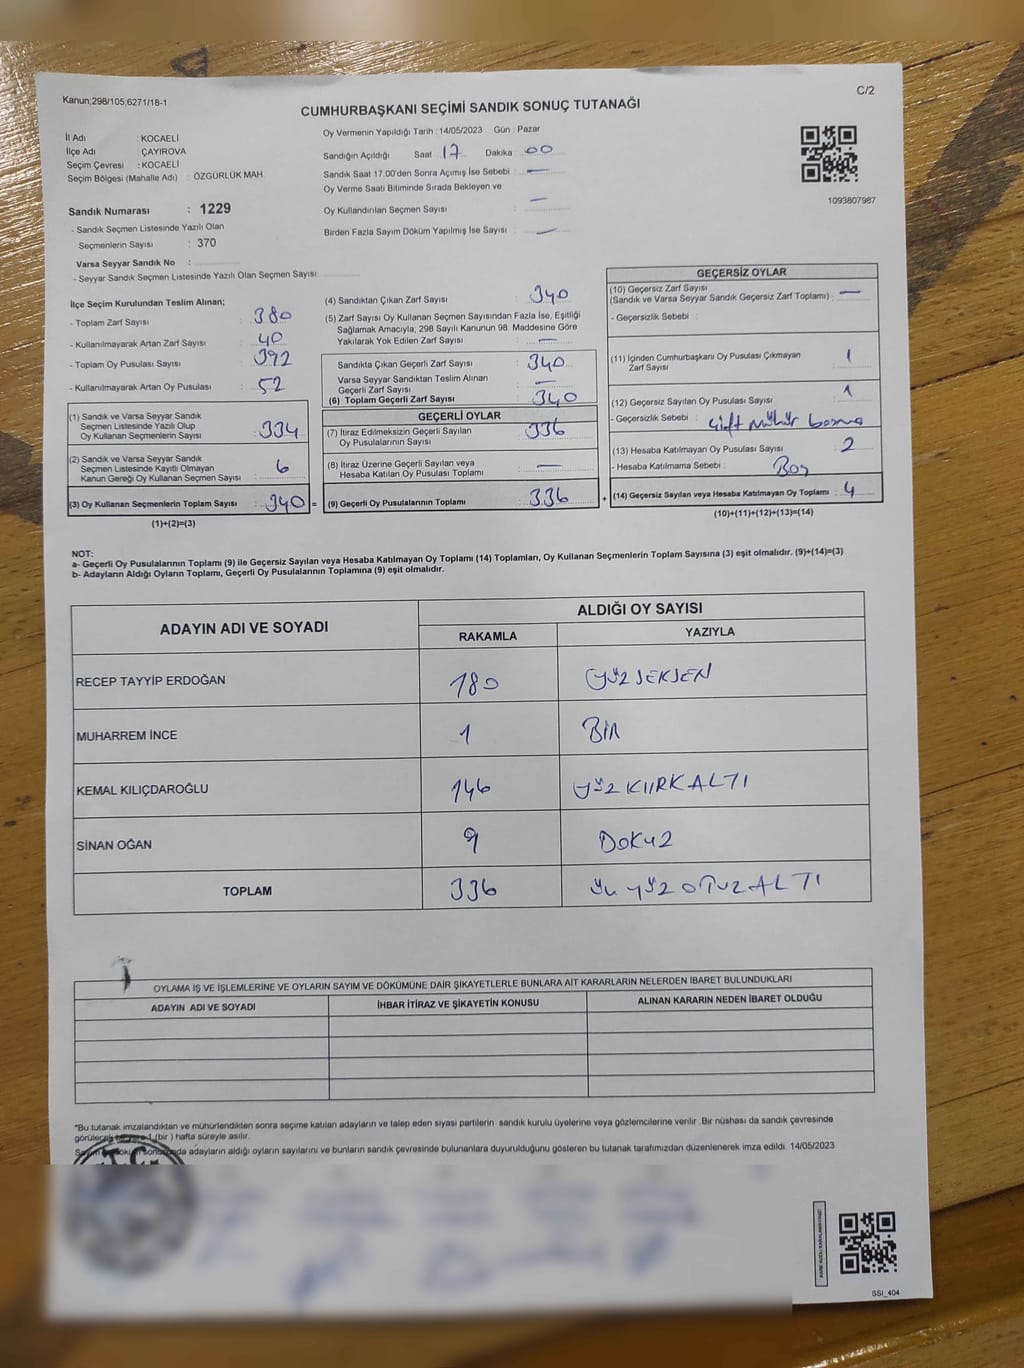 Kanun;298/105;6271/18-1
C/2
CUMHURBAŞKANI SEÇİMİ SANDIK SONUÇ TUTANAĞI
İl Adı : KOCAELİ
İlçe Adı : ÇAYIROVA
Seçim Çevresi : KOCAELİ
Seçim Bölgesi (Mahalle Adı) : ÖZGÜRLÜK MAH.
Sandık Numarası : 1229
- Sandık Seçmen Listesinde Yazılı Olan
Seçmenlerin Sayısı : 370
Varsa Seyyar Sandık No :
- Seyyar Sandık Seçmen Listesinde Yazılı Olan Seçmen Sayısı:
Oy Vermenin Yapıldığı Tarih : 14/05/2023 Gün : Pazar
Sandığın Açıldığı Saat 17 Dakika 00
Sandık Saat 17.00'den Sonra Açımış İse Sebebi : —
Oy Verme Saati Bitiminde Sırada Bekleyen ve
Oy Kullandırılan Seçmen Sayısı : —
Birden Fazla Sayım Döküm Yapılmış İse Sayısı : —
1093807987
İlçe Seçim Kurulundan Teslim Alınan;
- Toplam Zarf Sayısı : 380
- Kullanılmayarak Artan Zarf Sayısı : 40
- Toplam Oy Pusulası Sayısı : 392
- Kullanılmayarak Artan Oy Pusulası : 52
(1) Sandık ve Varsa Seyyar Sandık
Seçmen Listesinde Yazılı Olup
Oy Kullanan Seçmenlerin Sayısı : 334
(2) Sandık ve Varsa Seyyar Sandık
Seçmen Listesinde Kayıtlı Olmayan
Kanun Gereği Oy Kullanan Seçmen Sayısı : 6
(3) Oy Kullanan Seçmenlerin Toplam Sayısı : 340 =
(1)+(2)=(3)
(4) Sandıktan Çıkan Zarf Sayısı : 340
(5) Zarf Sayısı Oy Kullanan Seçmen Sayısından Fazla İse, Eşitliği
Sağlamak Amacıyla; 298 Sayılı Kanunun 98. Maddesine Göre
Yakılarak Yok Edilen Zarf Sayısı : —
Sandıkta Çıkan Geçerli Zarf Sayısı : 340
Varsa Seyyar Sandıktan Teslim Alınan
Geçerli Zarf Sayısı : —
(6) Toplam Geçerli Zarf Sayısı : 340
GEÇERLİ OYLAR
(7) İtiraz Edilmeksizin Geçerli Sayılan
Oy Pusulalarının Sayısı : 336
(8) İtiraz Üzerine Geçerli Sayılan veya
Hesaba Katılan Oy Pusulası Toplamı : —
(9) Geçerli Oy Pusulalarının Toplamı : 336 +
GEÇERSİZ OYLAR
(10) Geçersiz Zarf Sayısı
(Sandık ve Varsa Seyyar Sandık Geçersiz Zarf Toplamı) : —
- Geçersizlik Sebebi :
(11) İçinden Cumhurbaşkanı Oy Pusulası Çıkmayan
Zarf Sayısı : 1
(12) Geçersiz Sayılan Oy Pusulası Sayısı : 1
- Geçersizlik Sebebi : Çift mühür basma
(13) Hesaba Katılmayan Oy Pusulası Sayısı : 2
- Hesaba Katılmama Sebebi : Boş
(14) Geçersiz Sayılan veya Hesaba Katılmayan Oy Toplamı : 4
(10)+(11)+(12)+(13)=(14)
NOT:
a- Geçerli Oy Pusulalarının Toplamı (9) ile Geçersiz Sayılan veya Hesaba Katılmayan Oy Toplamı (14) Toplamları, Oy Kullanan Seçmenlerin Toplam Sayısına (3) eşit olmalıdır. (9)+(14)=(3)
b- Adayların Aldığı Oyların Toplamı, Geçerli Oy Pusulalarının Toplamına (9) eşit olmalıdır.
ADAYIN ADI VE SOYADI
ALDIĞI OY SAYISI
RAKAMLA YAZIYLA
RECEP TAYYİP ERDOĞAN 180 YÜZ SEKSEN
MUHARREM İNCE 1 BİR
KEMAL KILIÇDAROĞLU 146 YÜZ KIRK ALTI
SİNAN OĞAN 9 DOKUZ
TOPLAM 336 ÜÇ YÜZ OTUZ ALTI
OYLAMA İŞ VE İŞLEMLERİNE VE OYLARIN SAYIM VE DÖKÜMÜNE DAİR ŞİKAYETLERLE BUNLARA AİT KARARLARIN NELERDEN İBARET BULUNDUKLARI
ADAYIN ADI VE SOYADI İHBAR İTİRAZ VE ŞİKAYETİN KONUSU ALINAN KARARIN NEDEN İBARET OLDUĞU
"Bu tutanak imzalandıktan ve mühürlendikten sonra seçime katılan adayların ve talep eden siyasi partilerin sandık kurulu üyelerine veya gözlemcilerine verilir .Bir nüshası da sandık çevresinde
görülecek bir yere 1 (bir ) hafta süreyle asılır.
Sayım ve döküm sonucunda adayların aldığı oyların sayılarını ve bunların sandık çevresinde bulunanlara duyurulduğunu gösteren bu tutanak tarafımızdan düzenlenerek imza edildi. 14/05/2023
SSI_404